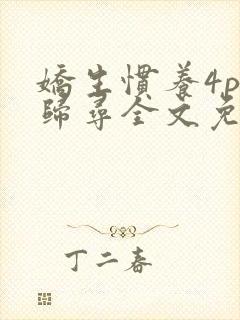 嬌生慣養4p
歸尋全文免
丁二春